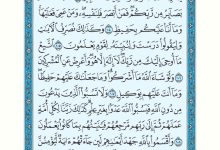 بَصَآئِرُ مِن رَّبِّكُمْ فَمَنْ أَبْصَرَ فَلِنَفْسِهِۦ وَمَنْ عَمِىَ فَعَلَيْهَا
وَمَآ أَنَا۠ عَلَيْكُم بِحَفِيظٍ وَكَذَٰلِكَ نُصَرِّفُ ٱلْءَايَـٰتِ
وَلِيَقُولُوا۟ دَرَسْتَ وَلِنُبَيِّنَهُۥ لِقَوْمٍ يَعْلَمُونَ ٱتَّبِعْ
مَآ أُوحِىَ إِلَيْكَ مِن رَّبِّكَ لَآ إِلَـٰهَ إِلَّا هُوَ وَأَعْرِضْ عَنِ ٱلْمُشْرِكِينَ
وَلَوْ شَآءَ ٱللَّهُ مَآ أَشْرَكُوا۟ وَمَا جَعَلْنَـٰكَ عَلَيْهِمْ حَفِيظًا
وَمَآ أَنتَ عَلَيْهِم بِوَكِيلٍ وَلَا تَسُبُّوا۟ ٱلَّذِينَ يَدْعُونَ
مِن دُونِ ٱللَّهِ فَيَسُبُّوا۟ ٱللَّهَ عَدْوًۢا بِغَيْرِ عِلْمٍ كَذَٰلِكَ زَيَّنَّا لِكُلِّ أُمَّةٍ
عَمَلَهُمْ ثُمَّ إِلَىٰ رَبِّهِم مَّرْجِعُهُمْ فَيُنَبِّئُهُم بِمَا كَانُوا۟ يَعْمَلُونَ
وَأَقْسَمُوا۟ بِٱللَّهِ جَهْدَ أَيْمَـٰنِهِمْ لَئِن جَآءَتْهُمْ ءَايَةٌ لَّيُؤْمِنُنَّ